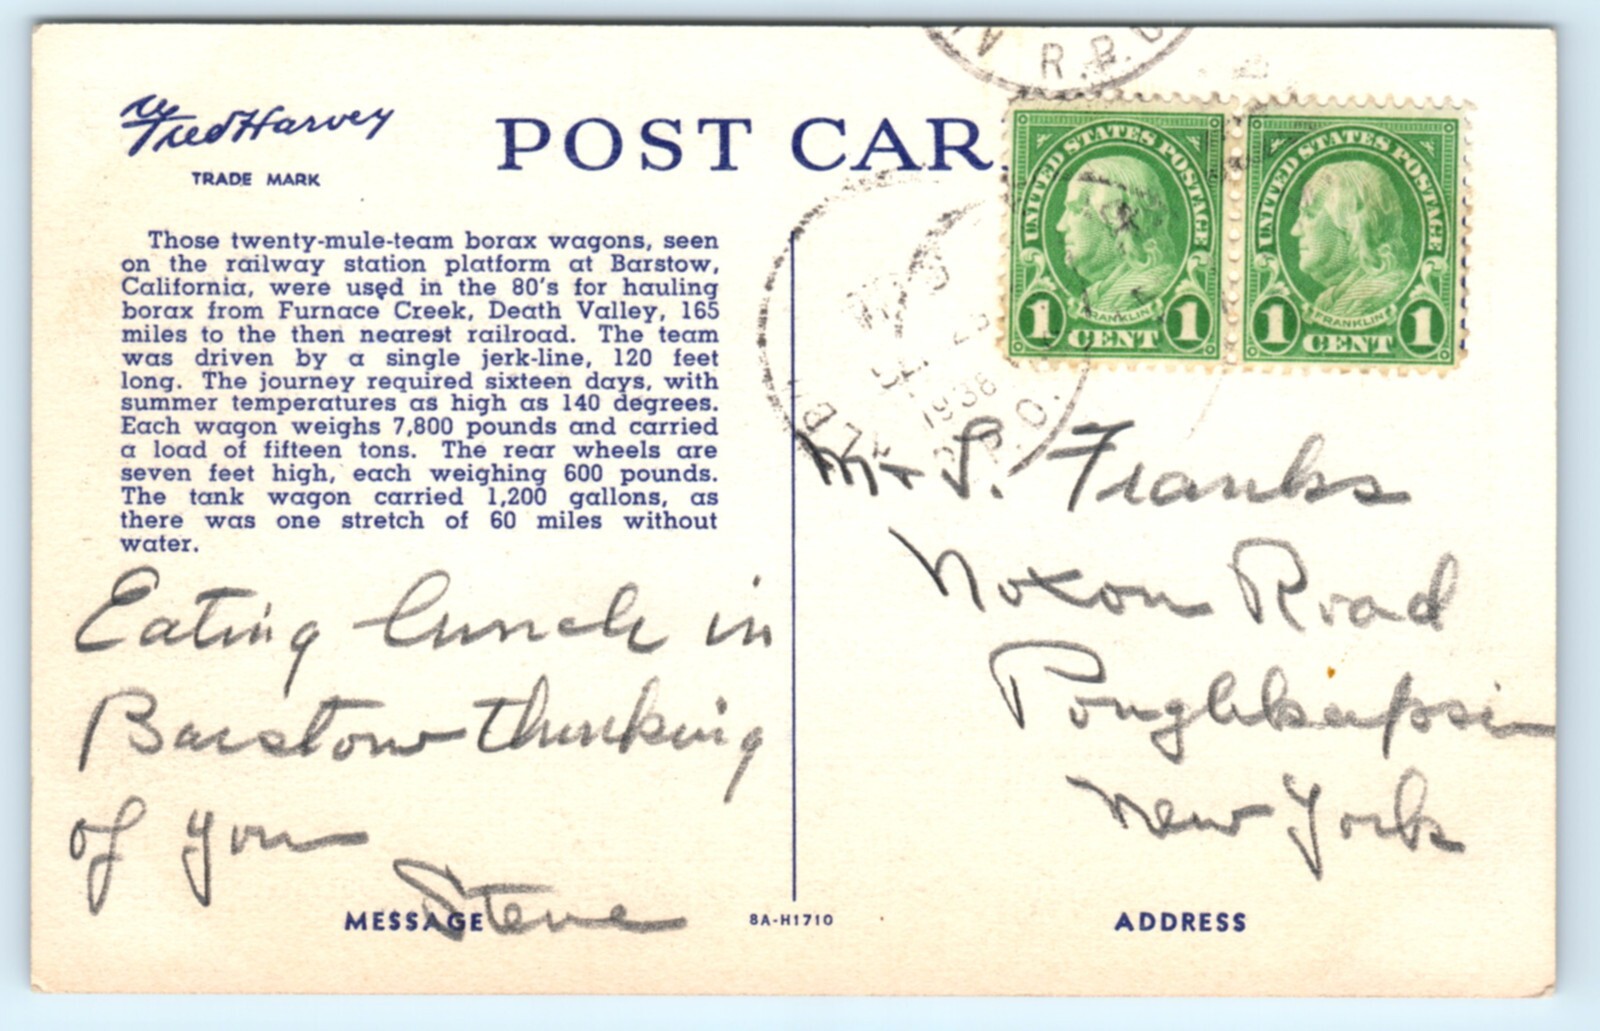 Fred Harvey
TRADE MARK
POST CAR
R.P.O.
UNITED STATES POSTAGE
FRANKLIN
1 CENT 1
UNITED STATES POSTAGE
FRANKLIN
1 CENT 1
1938
Those twenty-mule-team borax wagons, seen
on the railway station platform at Barstow,
California, were used in the 80's for hauling
borax from Furnace Creek, Death Valley, 165
miles to the then nearest railroad. The team
was driven by a single jerk-line, 120 feet
long. The journey required sixteen days, with
summer temperatures as high as 140 degrees.
Each wagon weighs 7,800 pounds and carried
a load of fifteen tons. The rear wheels are
seven feet high, each weighing 600 pounds.
The tank wagon carried 1,200 gallons, as
there was one stretch of 60 miles without
water.
Eating lunch in
Barstow thinking
of you
Steve
MESSAGE
8A-H1710
Mr S. Franks
Noxon Road
Poughkeepsie
New York
ADDRESS